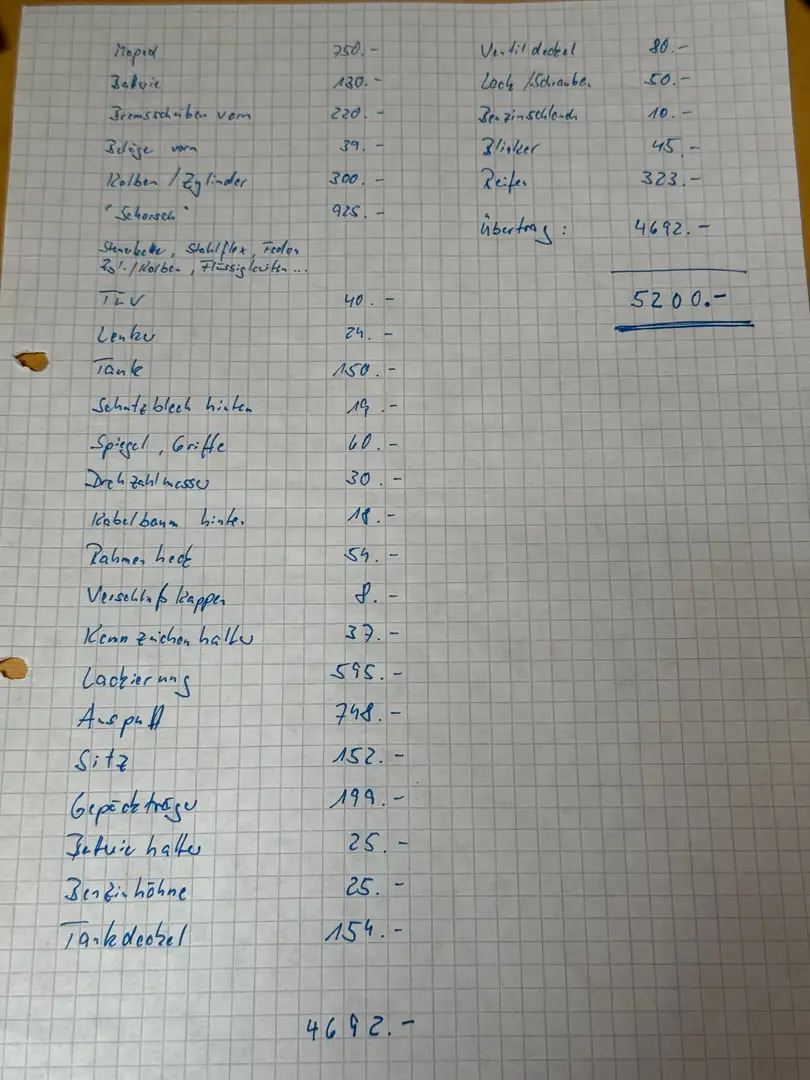 Moped 750.-
Batterie 130.-
Bremsscheiben vorn 220.-
Beläge vorn 39.-
Kolben / Zylinder 300.-
"Schorsch" 925.-
Steuerkette, Stahlflex, Federn
Zyl./Kolben, Flüssigkeiten...
TÜV 40.-
Lenker 24.-
Tank 150.-
Schutzblech hinten 19.-
Spiegel, Griffe 60.-
Drehzahlmesser 30.-
Kabelbaum hinten 18.-
Rahmenheck 54.-
Verschlußkappen 8.-
Kennzeichenhalter 37.-
Lackierung 595.-
Auspuff 748.-
Sitz 152.-
Gepäckträger 199.-
Batteriehalter 25.-
Benzinhähne 25.-
Tankdeckel 154.-
4692.-
Ventildeckel 80.-
Lack /Schrauben 50.-
Benzinschlauch 10.-
Blinker 45.-
Reifen 323.-
Übertrag: 4692.-
5200.-